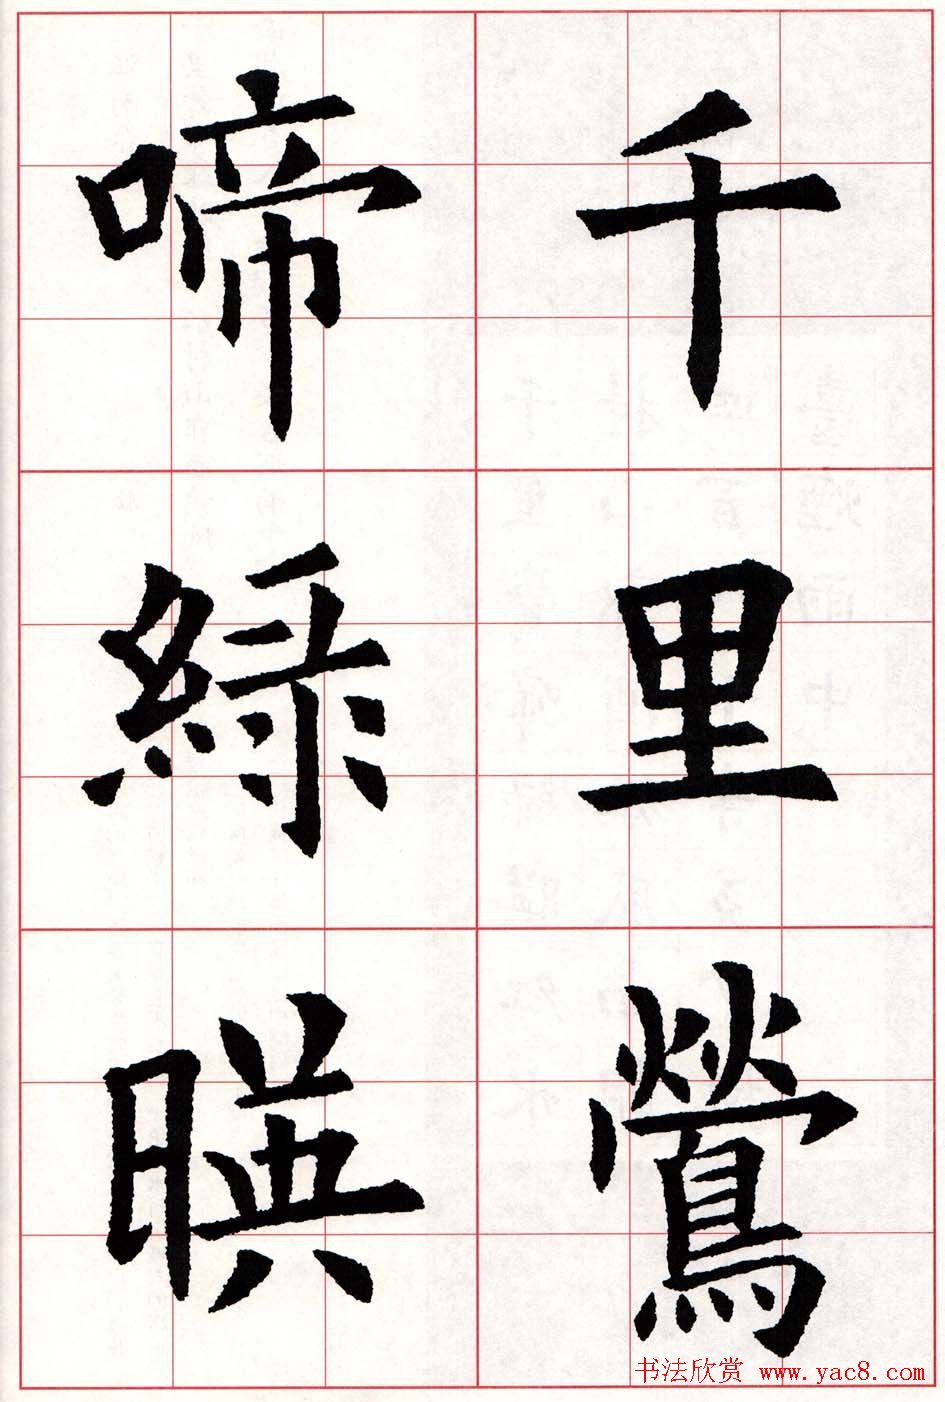 千里鶯
啼綠暎
书法欣赏 www.yac8.com